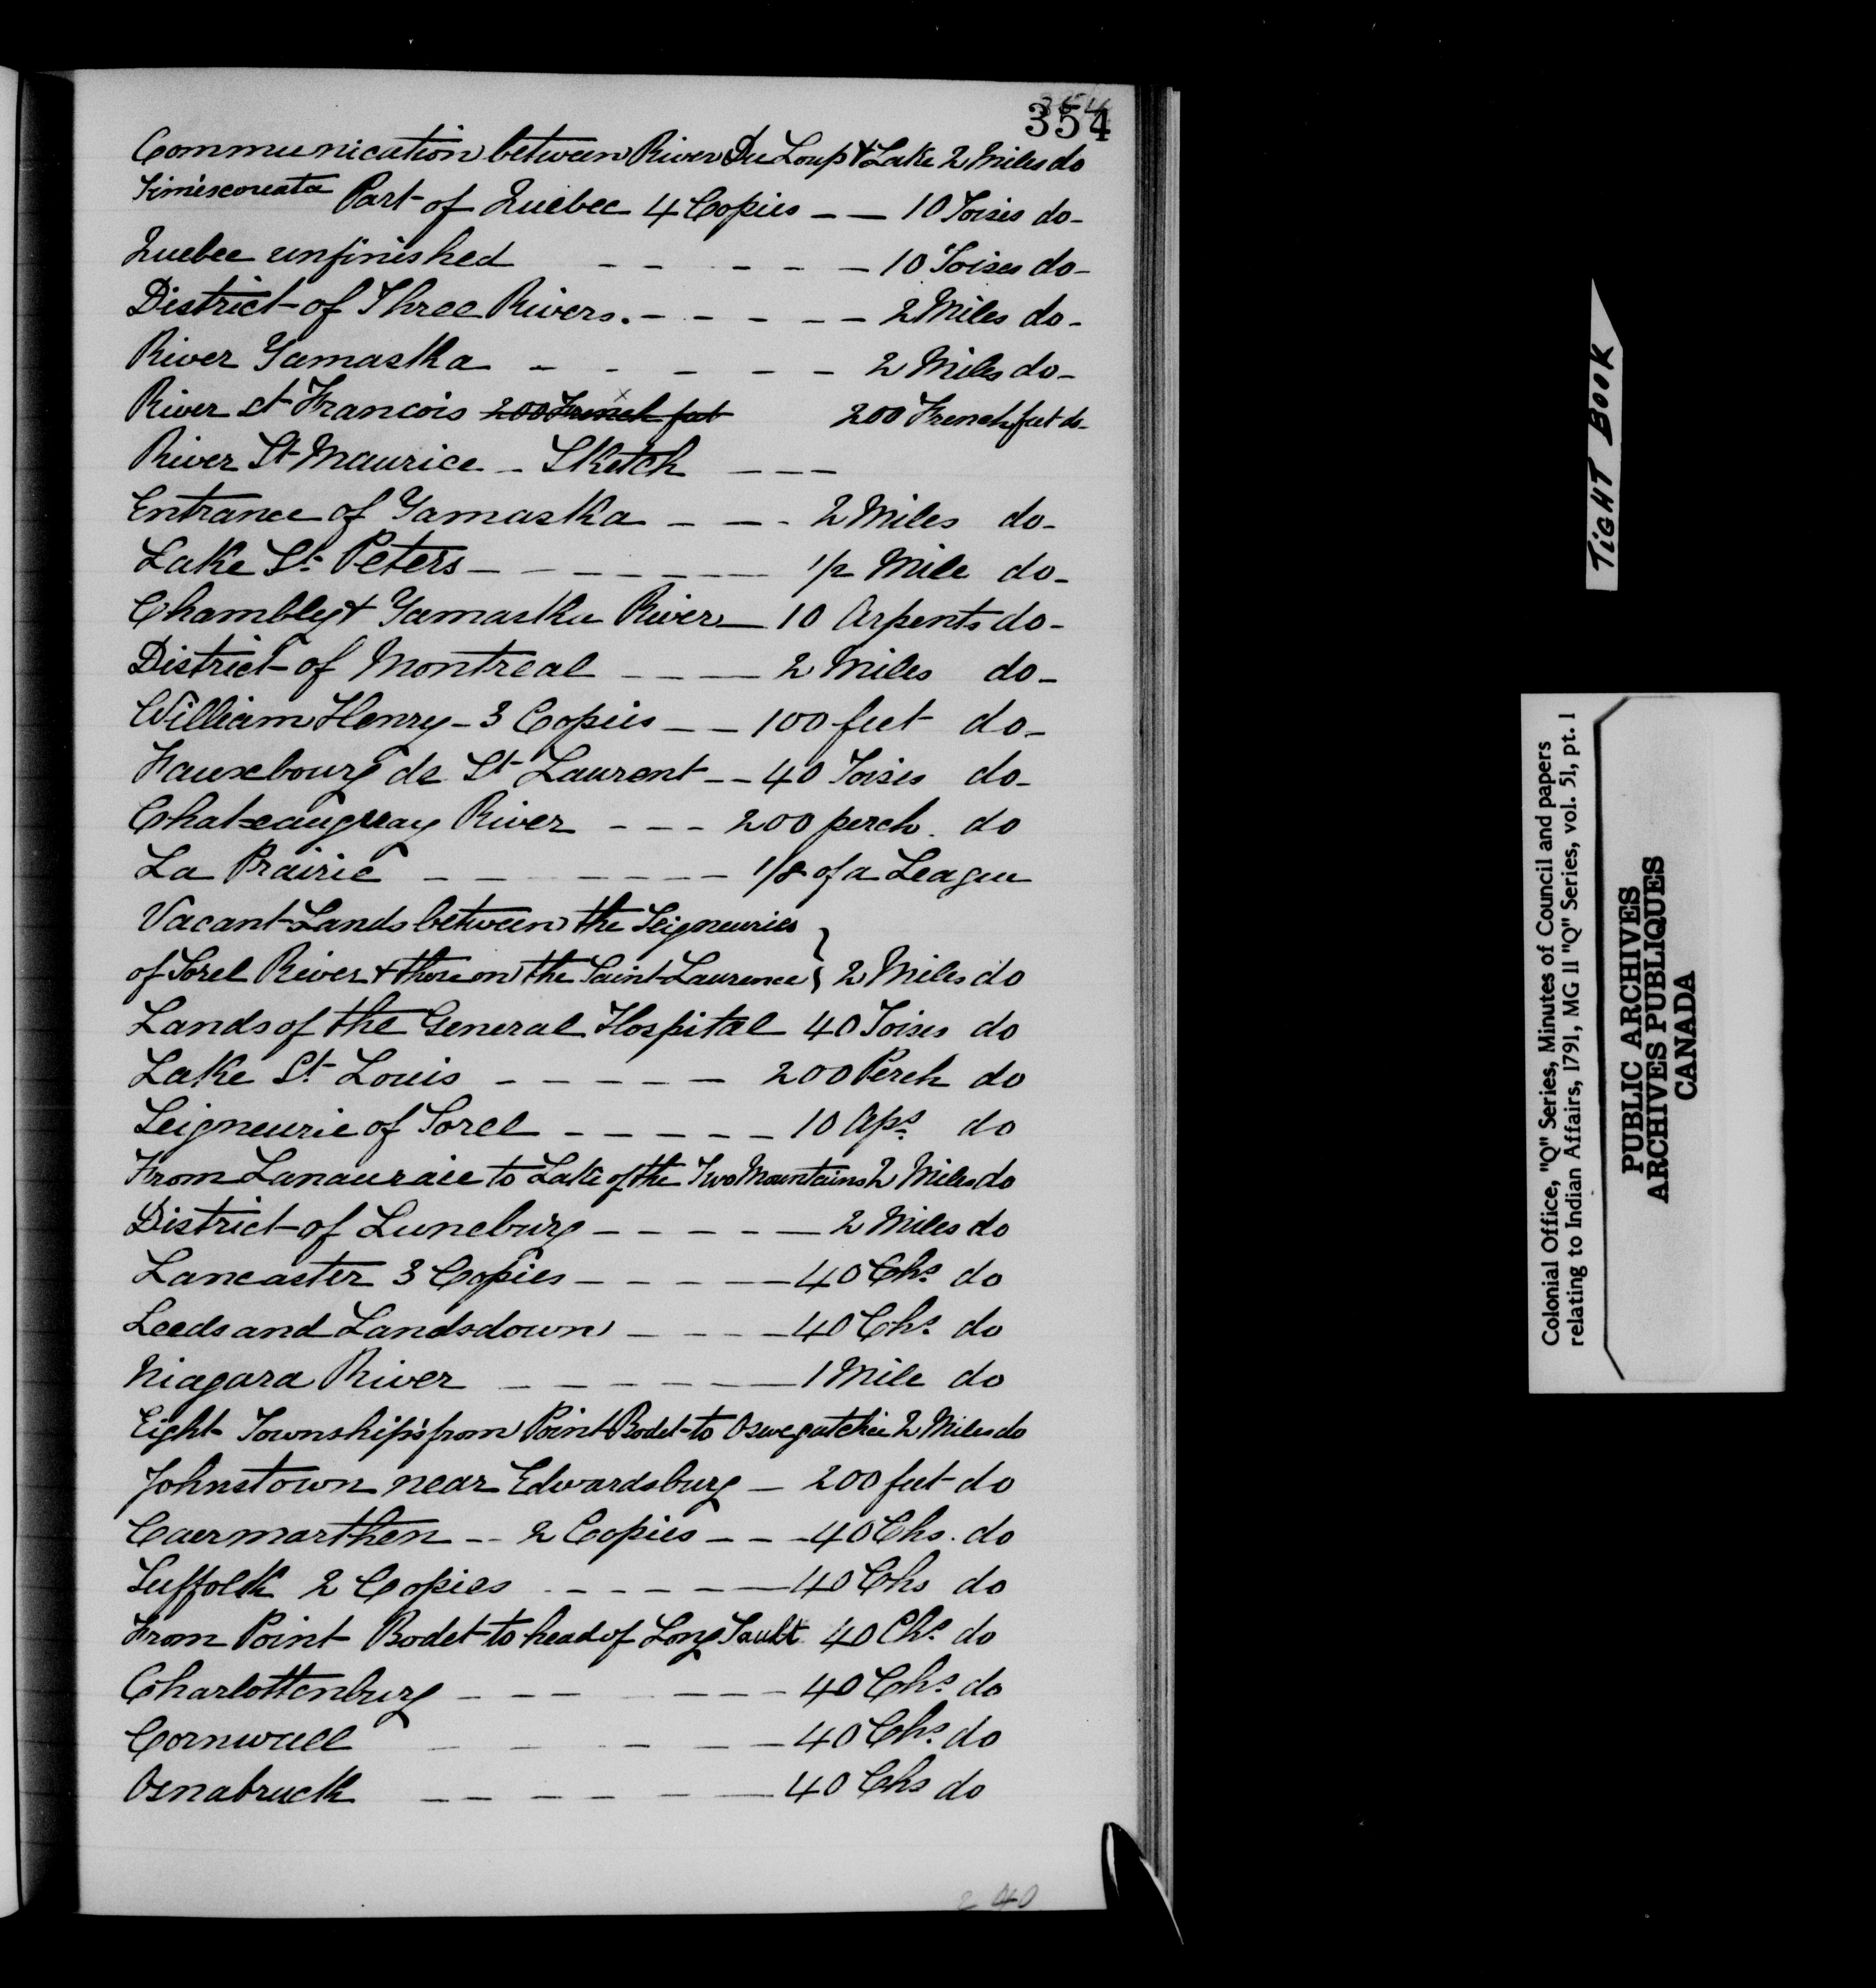 354
Communication between River Du Loup & Lake 2 Miles do
Timiscouata Part of Quebec 4 Copies - - 10 Toises do -
Quebec unfinished - - - - - 10 Toises do -
District of Three Rivers. - - - - - 2 Miles do -
River Yamaska - - - - - - 2 Miles do -
River St Francois 200 French feet 200 French feet do -
River St Maurice - Sketch - - -
Entrance of Yamaska - - - 2 Miles do -
Lake St. Peters - - - - - - 1/2 Mile do -
Chambly & Yamaska River - 10 Arpents do -
District of Montreal - - - 2 Miles do -
William Henry - 3 Copies - - 100 feet do -
Fauxebourg de St Laurent - - 40 Toises do -
Chateauguay River - - - 200 perch. do
La Prairie - - - - - - 1/8 of a League
Vacant Lands between the Seigneuries
of Sorel River & those on the Saint Laurence } 2 Miles do
Lands of the General Hospital 40 Toises do
Lake St. Louis - - - - - 200 Perch do
Seigneurie of Sorel - - - - - 10 Aps. do
From Lanauraie to Lake of the Two Mountains 2 Miles do
District of Luneburg - - - - - 2 Miles do
Lancaster 3 Copies - - - - - 40 Chs. do
Leeds and Landsdown - - - - 40 Chs. do
Niagara River - - - - - - 1 Mile do
Eight Townships from Point Bodet to Oswegatchie 2 Miles do
Johnstown near Edwardsburg - 200 feet do
Caermarthen - - 2 Copies - - - 40 Chs. do
Suffolk 2 Copies - - - - - 40 Chs do
From Point Bodet to head of Long Sault 40 Chs. do
Charlottenburg - - - - - - 40 Chs. do
Cornwall - - - - - - 40 Chs. do
Osnabruck - - - - - - 40 Chs do
240
TIGHT BOOK
Colonial Office, "Q" Series, Minutes of Council and papers
relating to Indian Affairs, 1791, MG 11 "Q" Series, vol. 51, pt. 1
PUBLIC ARCHIVES
ARCHIVES PUBLIQUES
CANADA